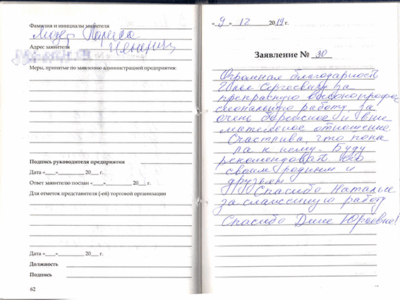 Фамилия и инициалы заявителя
Лариса
Адрес заявителя
Меры, принятые по заявлению администрацией предприятия:
Подпись руководителя предприятия
Дата «___»___________ 20___ г.
Ответ заявителю послан «___»___________ 20___ г.
Для отметок представителя (-ей) торговой организации
Дата «___»___________ 20___ г.
Должность
Подпись
62
«9» 12 2019 г.
Заявление № 30
Огромная благодарность
Сергеевичу за
прекрасную высокопрофес
сиональную работу, за
очень бережное и вни
мательное отношение
Счастлива, что попа
ла к нему. Буду
рекомендовать его
своим родным и
друзьям
Спасибо Наталье
за слаженную работу
Спасибо Дине Юрьевне!